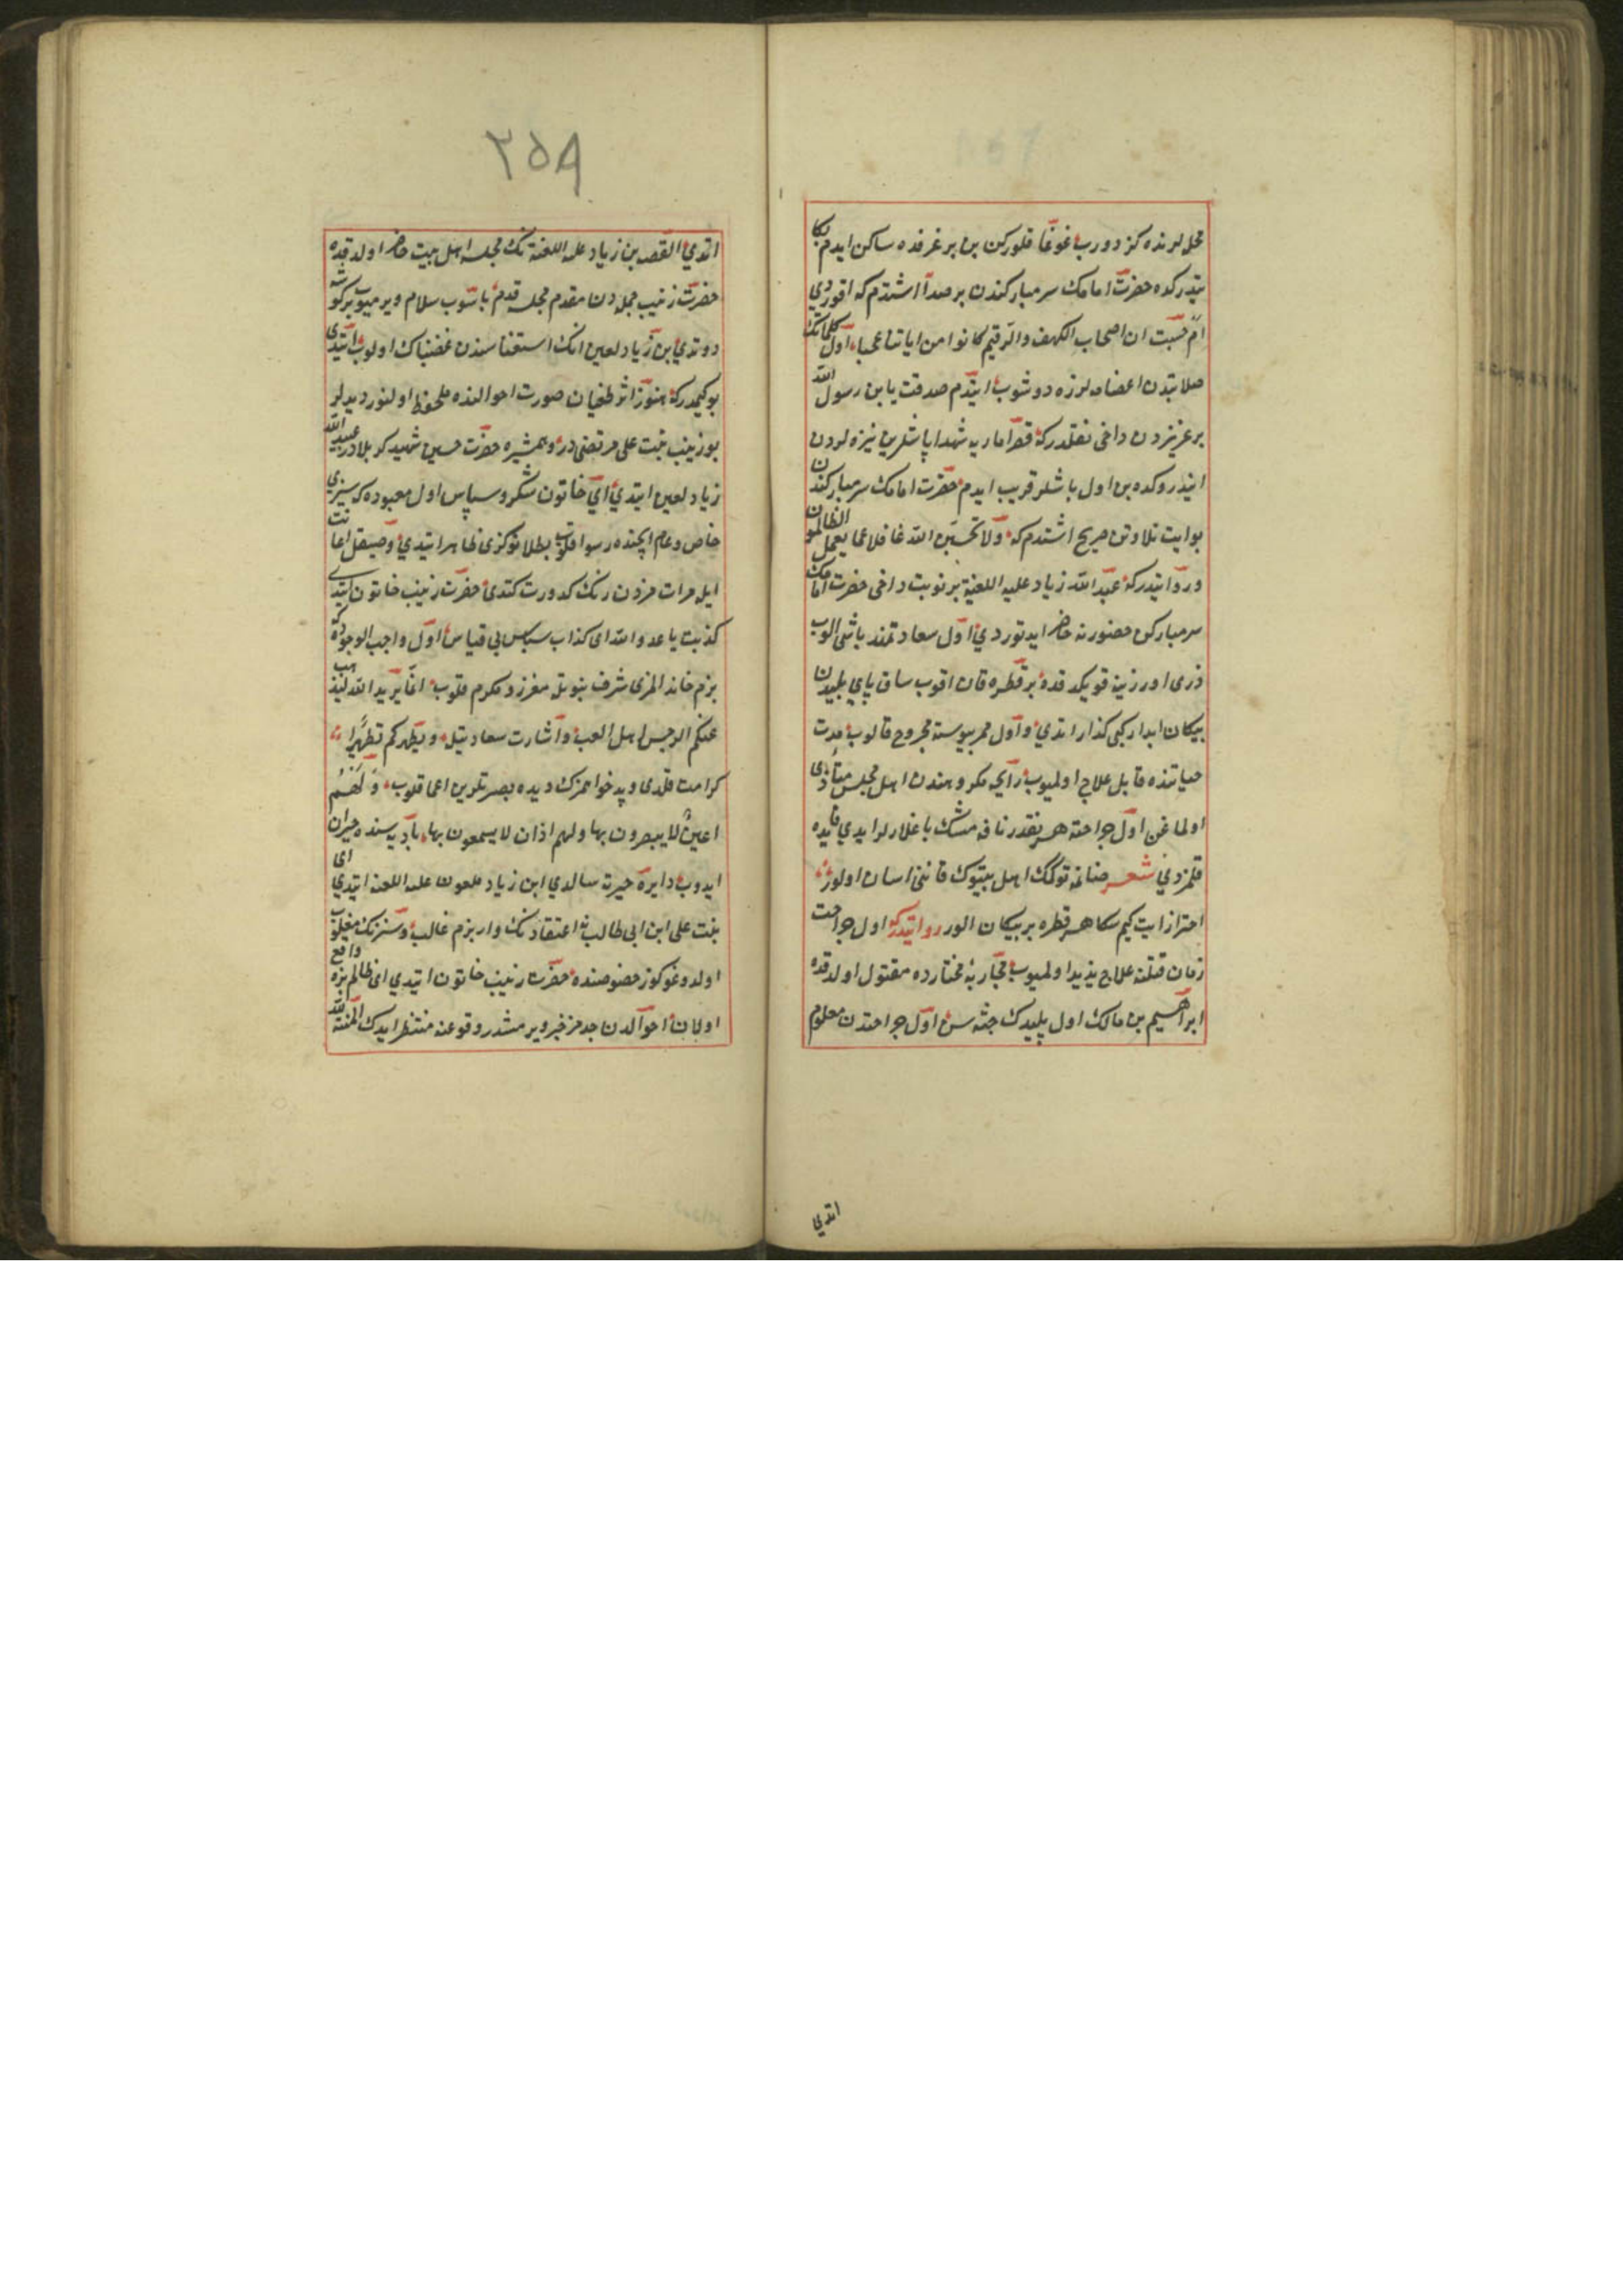 محللرنده كزدورب غوغا قلوركن بن بر غرفده ساكن ايدم بكا
يتدركده حضرت امامك سر مباركندن بر صدا اشتدم كه اقوردي
ام حسبت ان اصحاب الكهف والرقيم كانوا من اياتنا عجبا اول كلماتك
صلابتدن اعضامه لرزه دوشوب ايتدم صدقت يا بن رسول الله
بر عزيزدن داخى نقلدركه قصر اماريه شهدا باشلرين نيزه لردن
اينذروكده بن اول باشلر قريب ايدم حضرت امامك سر مباركندن
بو ايت تلاوتن صريح اشتدم كه ولا تحسبن الله غافلا عما يعمل الظالمون
وروايتدركه عبد الله زياد عليه اللعنة بر نوبت داخى حضرت امامك
سر مباركن حضورنه حاضر ايدتوردي اول سعادتمند باشى الوب
ذرى اوررزينه قويكد قده بر قطره قان اقوب ساق پاي پليدن
پيكان ابدار كبى كذار اتدي و اول ممر پيوسته مجروح قالوب مدت
حياتنده قابل علاج اولميوب رايحه مكروهندن اهل مجلس متأذى
اولماغن اول جراحته هر نقدر نافه مشك باغلارلر ايدي فايده
قلمزدي شعر صانمه توكمك اهل بيتوك قاننى اسان اولور
احتراز ايت كيم سكا هر قطره بر پيكان الور روايتدركه اول جراحت
زمان قتلنه علاج پذير اولميوب محاربۀ مختارده مقتول اولدقده
ابراهيم بن مالك اول پليدك جثه سن اول جراحتدن معلوم
اتدي
٢٥٩
اتدي القصه بن زياد عليه اللعنة نك مجلسه اهل بيت حاضر اولدقده
حضرت زينب جمله دن مقدم مجلسه قدم باصوب سلام ويرميوب بر كوشه
دوتدي بن زياد لعين انك استغناسندن غضبناك اولوب ايتدى
بو كيمدركه هنوز اثر طغيان صورت احوالنده ملحوظ اولنور ديديلر
بو زينب بنت على مرتضى در و همشيره حضرت حسين شهيد كربلادر عبيد الله
زياد لعين ايتدي اي خاتون شكر و سپاس اول معبوده كه سزى
خاص و عام ايچنده رسوا قلوب بطلانوكزى ظاهر ايتدي و صيقل اعانت
ايله مرات مزدن رنك كدورت كتدى حضرت زينب خاتون ايتدي
كذبت يا عدو الله اى كذاب سپاس بى قياس اول واجب الوجوده كه
بزم خاندانمزى شرف نبوتله معزز و مكرم قلوب انما يريد الله ليذهب
عنكم الرجس اهل البيت و اشارت سعادتيله و يطهركم تطهيرا
كرامت قلدى و بدخواهمزك ديده بصيرتلرين اعما قلوب و لهم
اعين لا يبصرون بها ولهم اذان لا يسمعون بها باديه سنده حيران
ايدوب دايرۀ حيرته سالدي ابن زياد ملعون عليه اللعنه ايتدي اى
بنت على ابن ابى طالب نه اعتقادنك وار بزم غالب و سزنك مغلوب
اولدوغوكوز خصوصنده حضرت زينب خاتون ايتدي اى ظالم بزه واقع
اولان احوالدن جدمز خبر ويرمشدر وقوعنه منتظر ايدك المنة لله